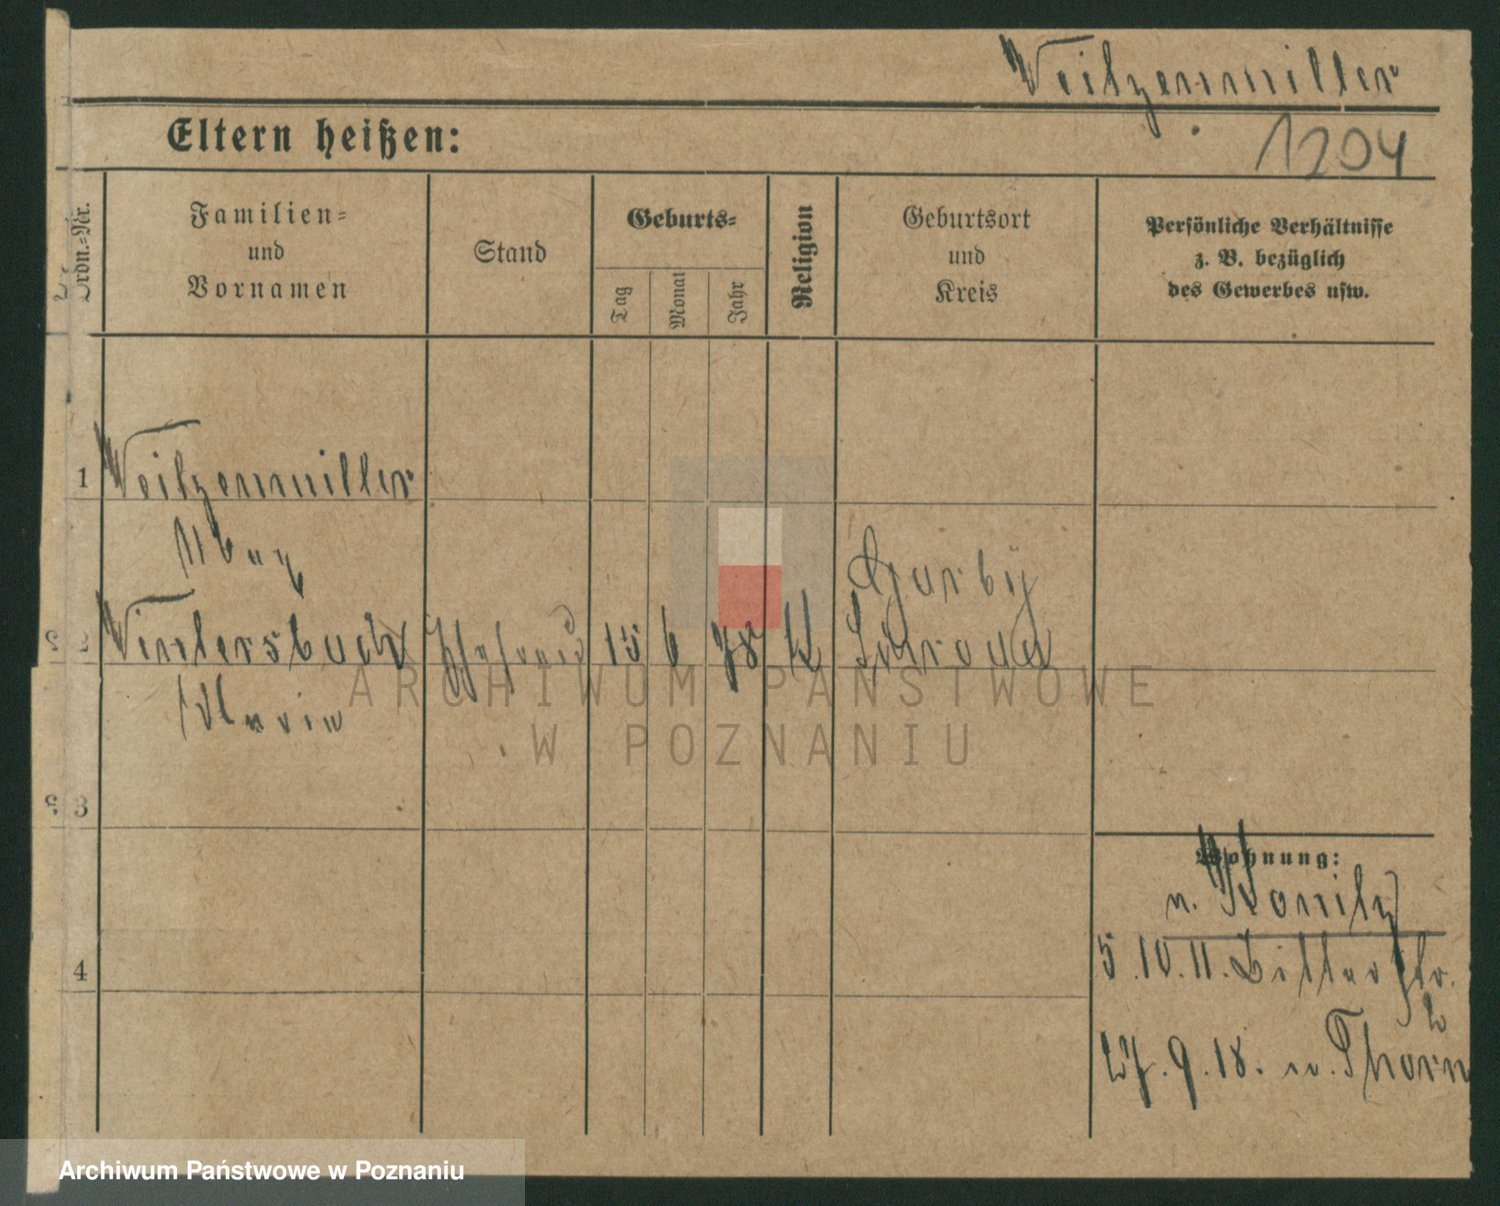 Weitzenmiller
1204
Eltern heißen:
Ordn.=Nr.
Familien=
und
Vornamen
Stand
Geburts=
Tag
Monat
Jahr
Religion
Geburtsort
und
Kreis
Persönliche Verhältnisse
z. B. bezüglich
des Gewerbes usw.
1 Weitzenmiller
2 Wintersbach 15 6 78 K Schroda
Maria
3
Wohnung:
n. Konitz
4
5.10.11. Bitterstr.
27.9.18. n. Thorn
ARCHIWUM PAŃSTWOWE
W POZNANIU
Archiwum Państwowe w Poznaniu